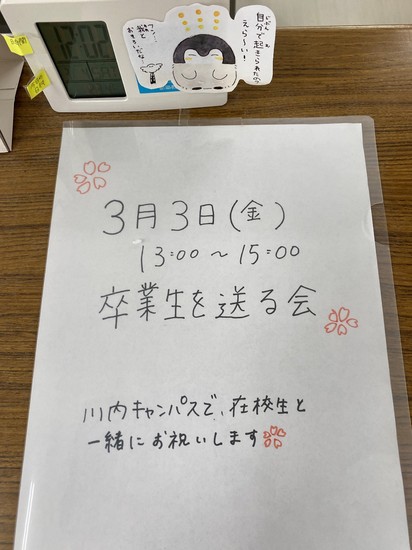 自分で起きられたの
えら〜い！
3月3日(金)
13:00〜15:00
卒業生を送る会
川内キャンパスで、在校生と
一緒にお祝いします